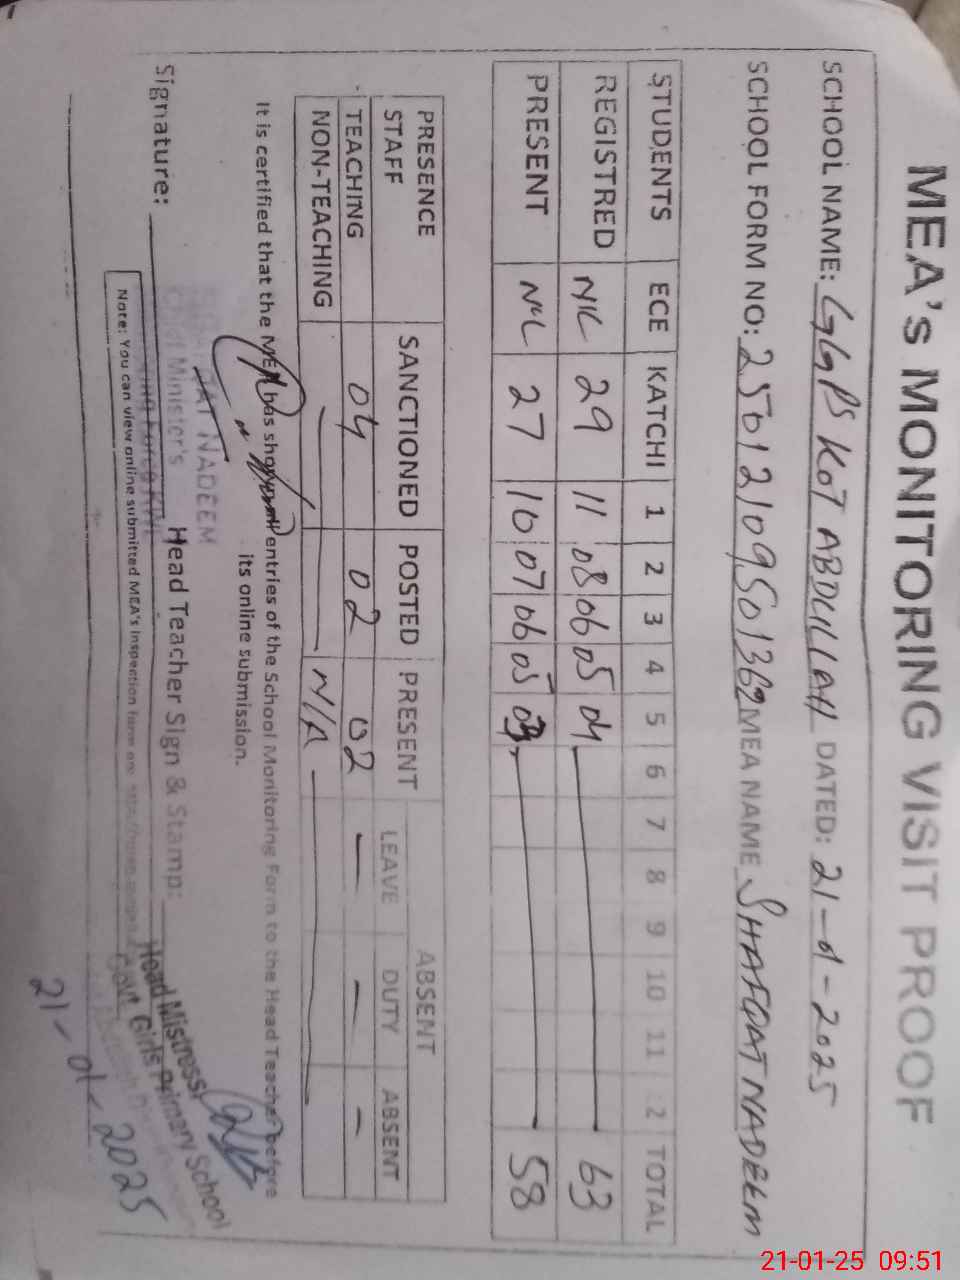 MEA's MONITORING VISIT PROOF
SCHOOL NAME: GGPS KOT ABDULLAH DATED: 21-01-2025
SCHOOL FORM NO: 25012109501362 MEA NAME SHAFQAT NADEEM
STUDENTS ECE KATCHI 1 2 3 4 5 6 7 8 9 10 11 2 TOTAL
REGISTRED NIL 29 11 08 06 05 04 63
PRESENT NIL 27 10 07 06 05 03 58
PRESENCE SANCTIONED POSTED PRESENT ABSENT
STAFF LEAVE DUTY ABSENT
TEACHING 04 02 02 — — —
NON-TEACHING — N/A —
It is certified that the MEA has shown all entries of the School Monitoring Form to the Head Teacher before
its online submission.
NADEEM
Chief Minister's
Signature: Head Teacher Sign & Stamp:
Head Mistress
Govt. Girls Primary School
Note: You can view online submitted MEA's inspection form on:
21-01-2025
21-01-25 09:51